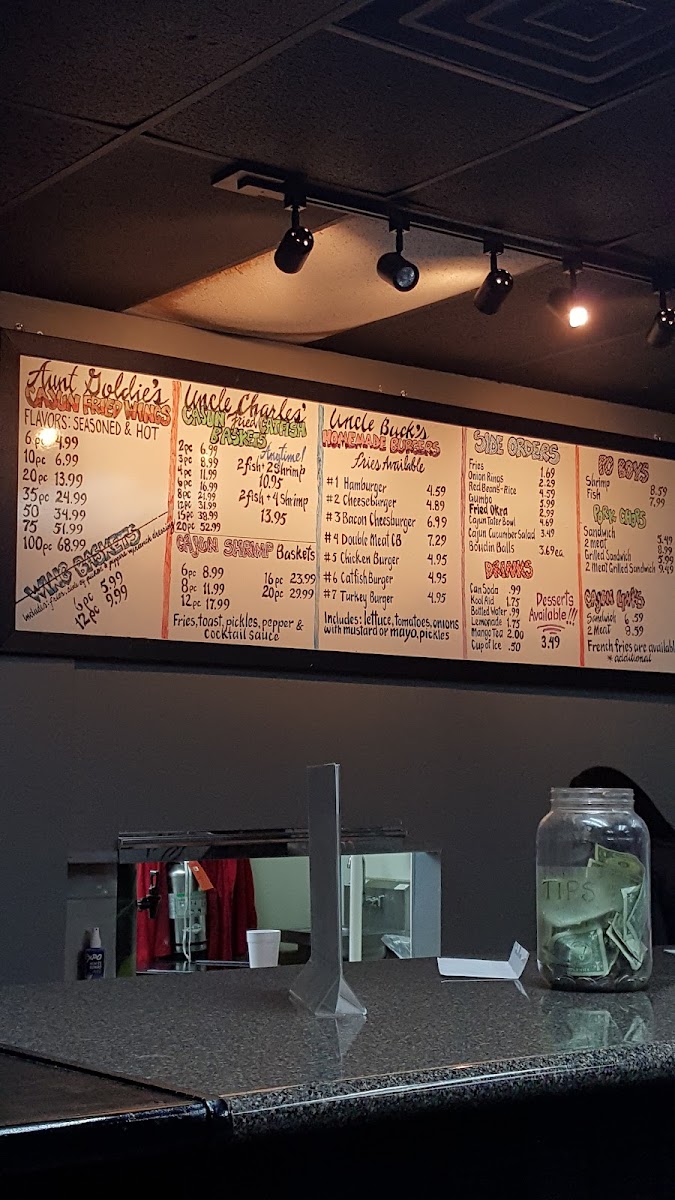 Aunt Goldie's
CAJUN FRIED WINGS
FLAVORS: SEASONED & HOT
6pc 4.99
10pc 6.99
20pc 13.99
35pc 24.99
50 34.99
75 51.99
100pc 68.99
WING BASKETS
6pc 5.99
12pc 9.99
Uncle Charles'
CAJUN Fried CATFISH
BASKETS
2pc 6.99
3pc 8.99
4pc 11.99
6pc 16.99
8pc 21.99
12pc 31.99
15pc 38.99
20pc 52.99
Anytime!
2 fish + 2 shrimp
10.95
2 fish + 4 shrimp
13.95
CAJUN SHRIMP Baskets
6pc 8.99
8pc 11.99
12pc 17.99
16pc 23.99
20pc 29.99
Fries, toast, pickles, pepper &
cocktail sauce
Uncle Buck's
HOMEMADE BURGERS
Fries Available
#1 Hamburger 4.59
#2 Cheeseburger 4.89
#3 Bacon Cheesburger 6.99
#4 Double Meat CB 7.29
#5 Chicken Burger 4.95
#6 Catfish Burger 4.95
#7 Turkey Burger 4.95
Includes: lettuce, tomatoes, onions
with mustard or mayo, pickles
SIDE ORDERS
Fries 1.69
Onion Rings 2.29
Red Beans+Rice 4.59
Gumbo 5.99
Fried Okra 2.99
Cajun Tater Bowl 4.69
Cajun Cucumber Salad 3.49
Boudin Balls 3.69ea.
DRINKS
Can Soda .99
Kool Aid 1.75
Bottled Water .99
Lemonade 1.75
Mango Tea 2.00
Cup of Ice .50
Desserts
Available!!!
3.49
PO BOYS
Shrimp 8.59
Fish 7.99
PORK CHOPS
Sandwich 5.49
2 meat 8.99
Grilled Sandwich 5.99
2 Meat Grilled Sandwich 9.49
CAJUN LINKS
Sandwich 6.59
2 Meat 8.59
French fries are available
* additional
TIPS
EXPO